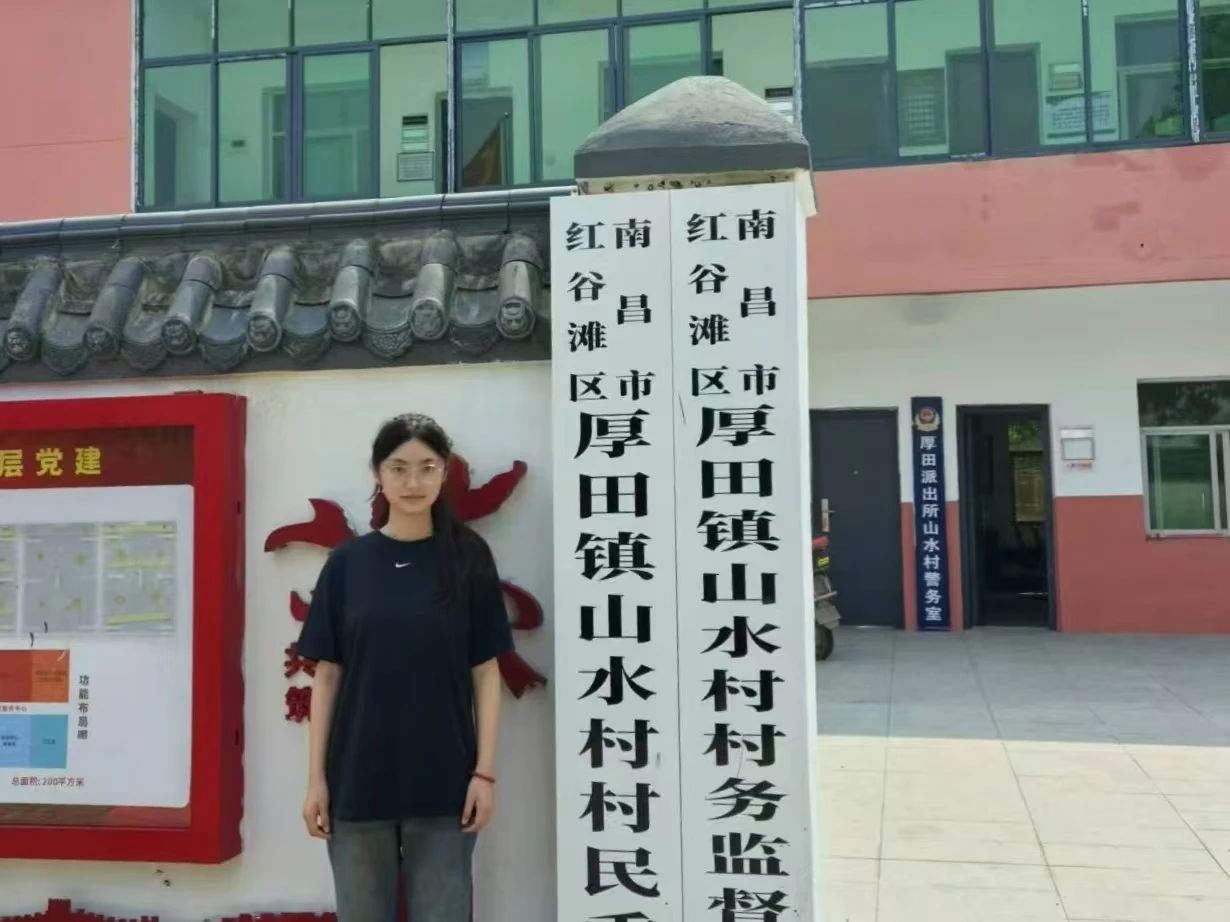 层党建
功能布局图
总面积：200平方米
共
筑
南昌市
红谷滩区
厚田镇山水村村民
南昌市
红谷滩区
厚田镇山水村村务监督
厚田派出所山水村警务室